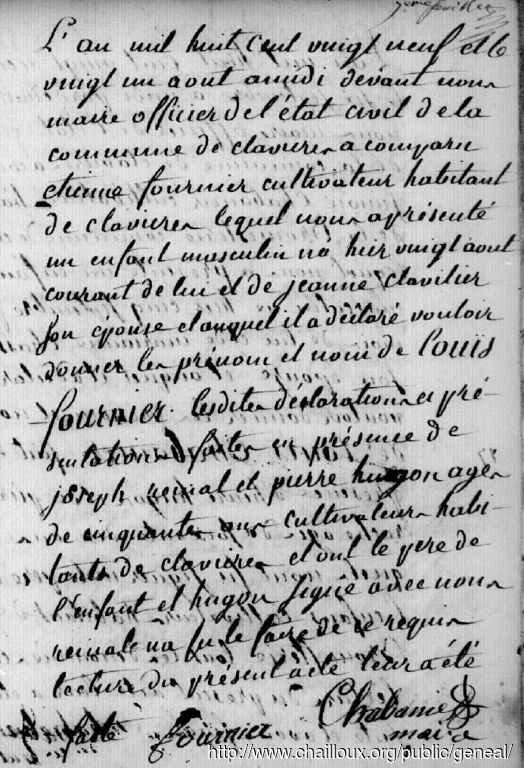 7eme feuillet
L'an mil huit cent vingt neuf et le
vingt un aout a midi devant nous
maire officier de l'état civil de la
commune de clavieres a comparu
etienne fournier cultivateur habitant
de clavieres lequel nous a présenté
un enfant masculin né hier vingt aout
courant de lui et de jeanne clavilier
son epouse et auquel il a déclaré vouloir
donner les prénom et nom de Louis
fournier. lesdites déclarations et pré-
sentations faites en présence de
joseph remial et pierre hugon agés
de cinquante ans cultivateurs habi-
tants de clavieres et ont le pere de
l'enfant et hugon signé avec nous
na su le faire de ce requis
lecture du présent acte leur a été
faite fournier Chabanie
maire
http://www.chailloux.org/public/geneal/